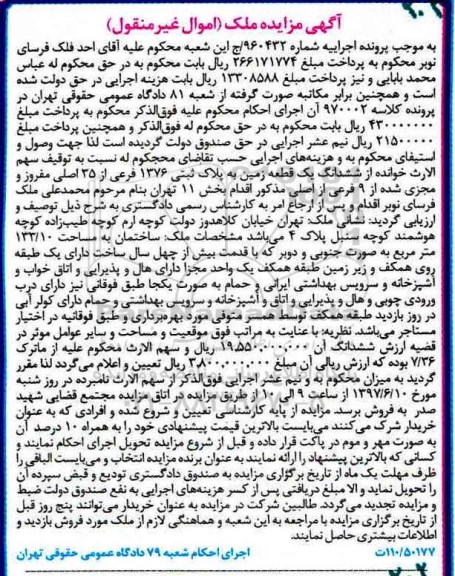 آگهی مزایده ملک (اموال غیرمنقول)
به موجب پرونده اجراییه شماره ۹۶۰۴۳۲/ج این شعبه محکوم علیه آقای احد فلک فرسای
نوبر محکوم به پرداخت مبلغ ۲۶۶۱۷۱۷۷۴ ریال بابت محکوم به در حق محکوم له عباس
محمد بابایی و نیز پرداخت مبلغ ۱۳۳۰۸۵۸۸ ریال بابت هزینه اجرایی در حق دولت شده
است و همچنین برابر مکاتبه صورت گرفته از شعبه ۸۱ دادگاه عمومی حقوقی تهران در
پرونده کلاسه ۹۷۰۰۰۲ آن اجرای احکام محکوم علیه فوق‌الذکر محکوم به پرداخت مبلغ
۴۳۰۰۰۰۰۰۰ ریال بابت محکوم به در حق محکوم له فوق‌الذکر و همچنین پرداخت مبلغ
۲۱۵۰۰۰۰۰ ریال نیم عشر اجرایی در حق صندوق دولت گردیده است لذا جهت وصول و
استیفای محکوم به و هزینه‌های اجرایی حسب تقاضای محجکوم له نسبت به توقیف سهم
الارث خوانده از ششدانگ یک قطعه زمین به پلاک ثبتی ۱۳۷۶ فرعی از ۳۵ اصلی مفروز و
مجزی شده از ۹ فرعی از اصلی مذکور اقدام بخش ۱۱ تهران بنام مرحوم محمدعلی ملک
فرسای نوبر اقدام و پس از ارجاع امر به کارشناس رسمی دادگستری به شرح ذیل توصیف و
ارزیابی گردید: نشانی ملک: تهران خیابان کلاهدوز دولت کوچه ارم کوچه طبیب‌زاده کوچه
هوشمند کوچه سنبل پلاک ۴ می‌باشد مشخصات ملک: ساختمان به مساحت ۱۳۳/۱۰
متر مربع به صورت جنوبی و دوبر که با قدمت بیش از چهل سال ساخت دارای یک طبقه
روی همکف و زیر زمین طبقه همکف یک واحد مجزا دارای هال و پذیرایی و اتاق خواب و
آشپزخانه و سرویس بهداشتی ایرانی و حمام به صورت یکجا طبق فوقانی نیز دارای درب
ورودی چوبی و هال و پذیرایی و اتاق و آشپزخانه و سرویس بهداشتی و حمام دارای کولر آبی
در روز بازدید طبقه همکف توسط همسر متوفی مورد بهره‌برداری و طبق فوقانیه در اختیار
مستاجر می‌باشد. نظریه: با عنایت به مراتب فوق موقعیت و مساحت و سایر عوامل موثر در
قضیه ارزش ششدانگ آن ۱۹،۵۵۰،۰۰۰،۰۰۰ ریال و سهم الارث محکوم علیه از ماترک
۷/۳۶ بوده که ارزش ریالی آن مبلغ ۳،۸۰۰،۰۰۰،۰۰۰ ریال تعیین و اعلام می‌گردد لذا مقرر
گردید به میزان محکوم به و نیم عشر اجرایی فوق‌الذکر از سهم الارث نامبرده در روز شنبه
مورخ ۱۳۹۷/۶/۱۰ از ساعت ۹ الی ۱۰ از طریق مزایده در اتاق مزایده مجتمع قضایی شهید
صدر به فروش برسد. مزایده از پایه کارشناسی تعیین و شروع شده و افرادی که به عنوان
خریدار شرک می‌کنند می‌بایست بالاترین قیمت پیشنهادی خود را به همراه ۱۰ درصد آن
به صورت مهر و موم در پاکت قرار داده و قبل از شروع مزایده تحویل اجرای احکام نمایند و
کسانی که بالاترین پیشنهاد را ارائه نمایند به عنوان برنده مزایده انتخاب و می‌بایست الباقی را
ظرف مهلت یک ماه از تاریخ برگزاری مزایده به صندوق دادگستری تودیع و قبض سپرده آن
را تحویل نماید و الا مبلغ دریافتی پس از کسر هزینه‌های اجرایی به نفع صندوق دولت ضبط
و مزایده تجدید می‌گردد. طالبین شرکت در مزایده به عنوان خریدار می‌توانند پنج روز قبل
از تاریخ برگزاری مزایده با مراجعه به این شعبه و هماهنگی لازم از ملک مورد فروش بازدید و
اطلاعات بیشتری حاصل نمایند.
۱۱۰/۵۰۱۷۷ت اجرای احکام شعبه ۷۹ دادگاه عمومی حقوقی تهران